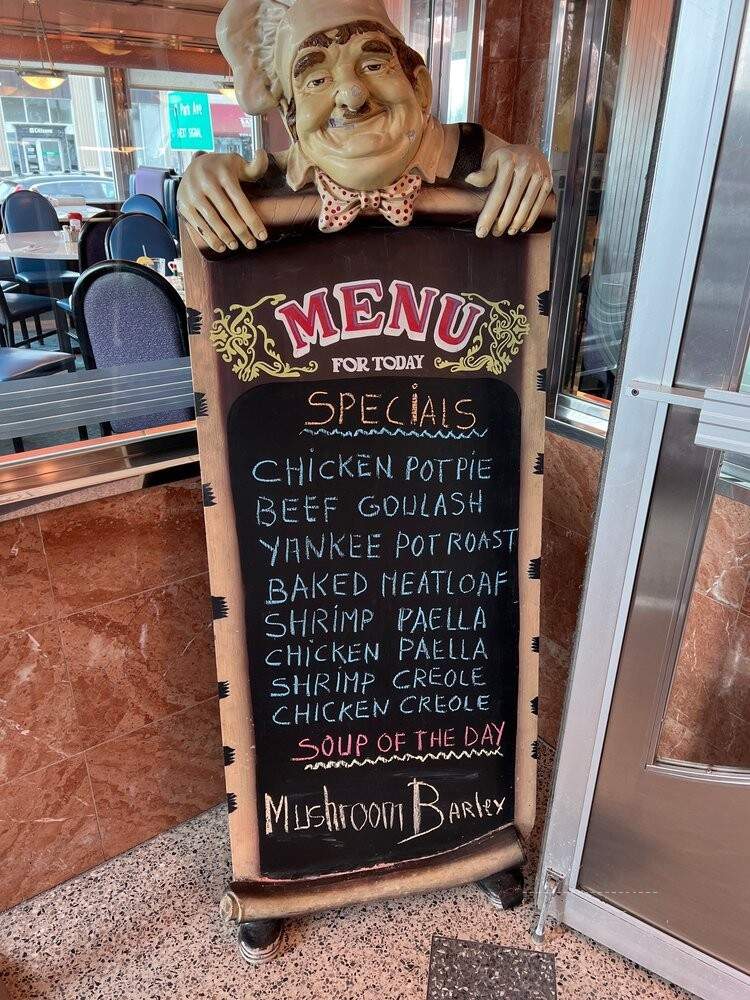 Park Ave
NEXT SIGNAL
MENU
FOR TODAY
SPECiALS
CHiCKEN POTPIE
BEEF GOULASH
YANKEE POT ROAST
BAKED MEATLOAF
SHRiMP PAELLA
CHiCKEN PAELLA
SHRIMP CREOLE
CHICKEN CREOLE
SOUP OF THE DAY
Mushroom Barley